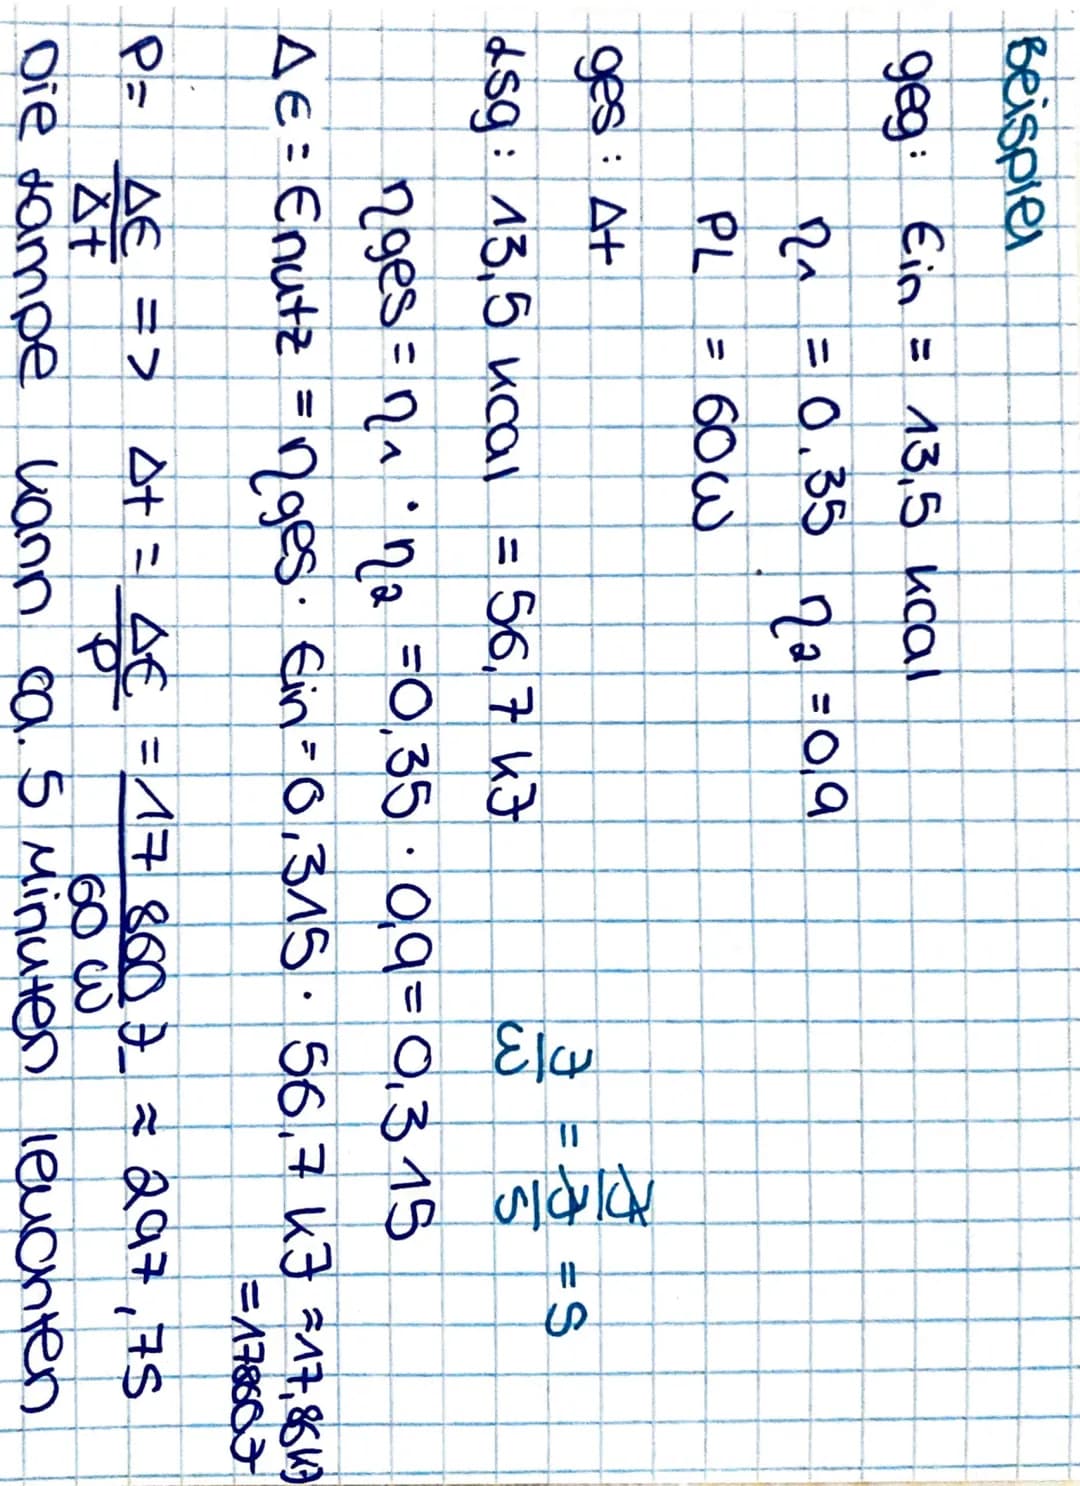 Beispiel
geg: Ein = 13,5 kcal
η₁ = 0,35 η₂ = 0,9
PL = 60W
ges: Δt
Lsg: 13,5 kcal = 56,7 kJ
J/W = J/(J/s) = s
ηges = η₁ · η₂ = 0,35 · 0,9 = 0,315
ΔE = Enutz = ηges · Ein = 0,315 · 56,7 kJ = 17,86 kJ
= 17860J
P = ΔE/Δt => Δt = ΔE/P = 17 860 J/60 W ≈ 297,7s
Die Lampe kann ca. 5 Minuten leuchten